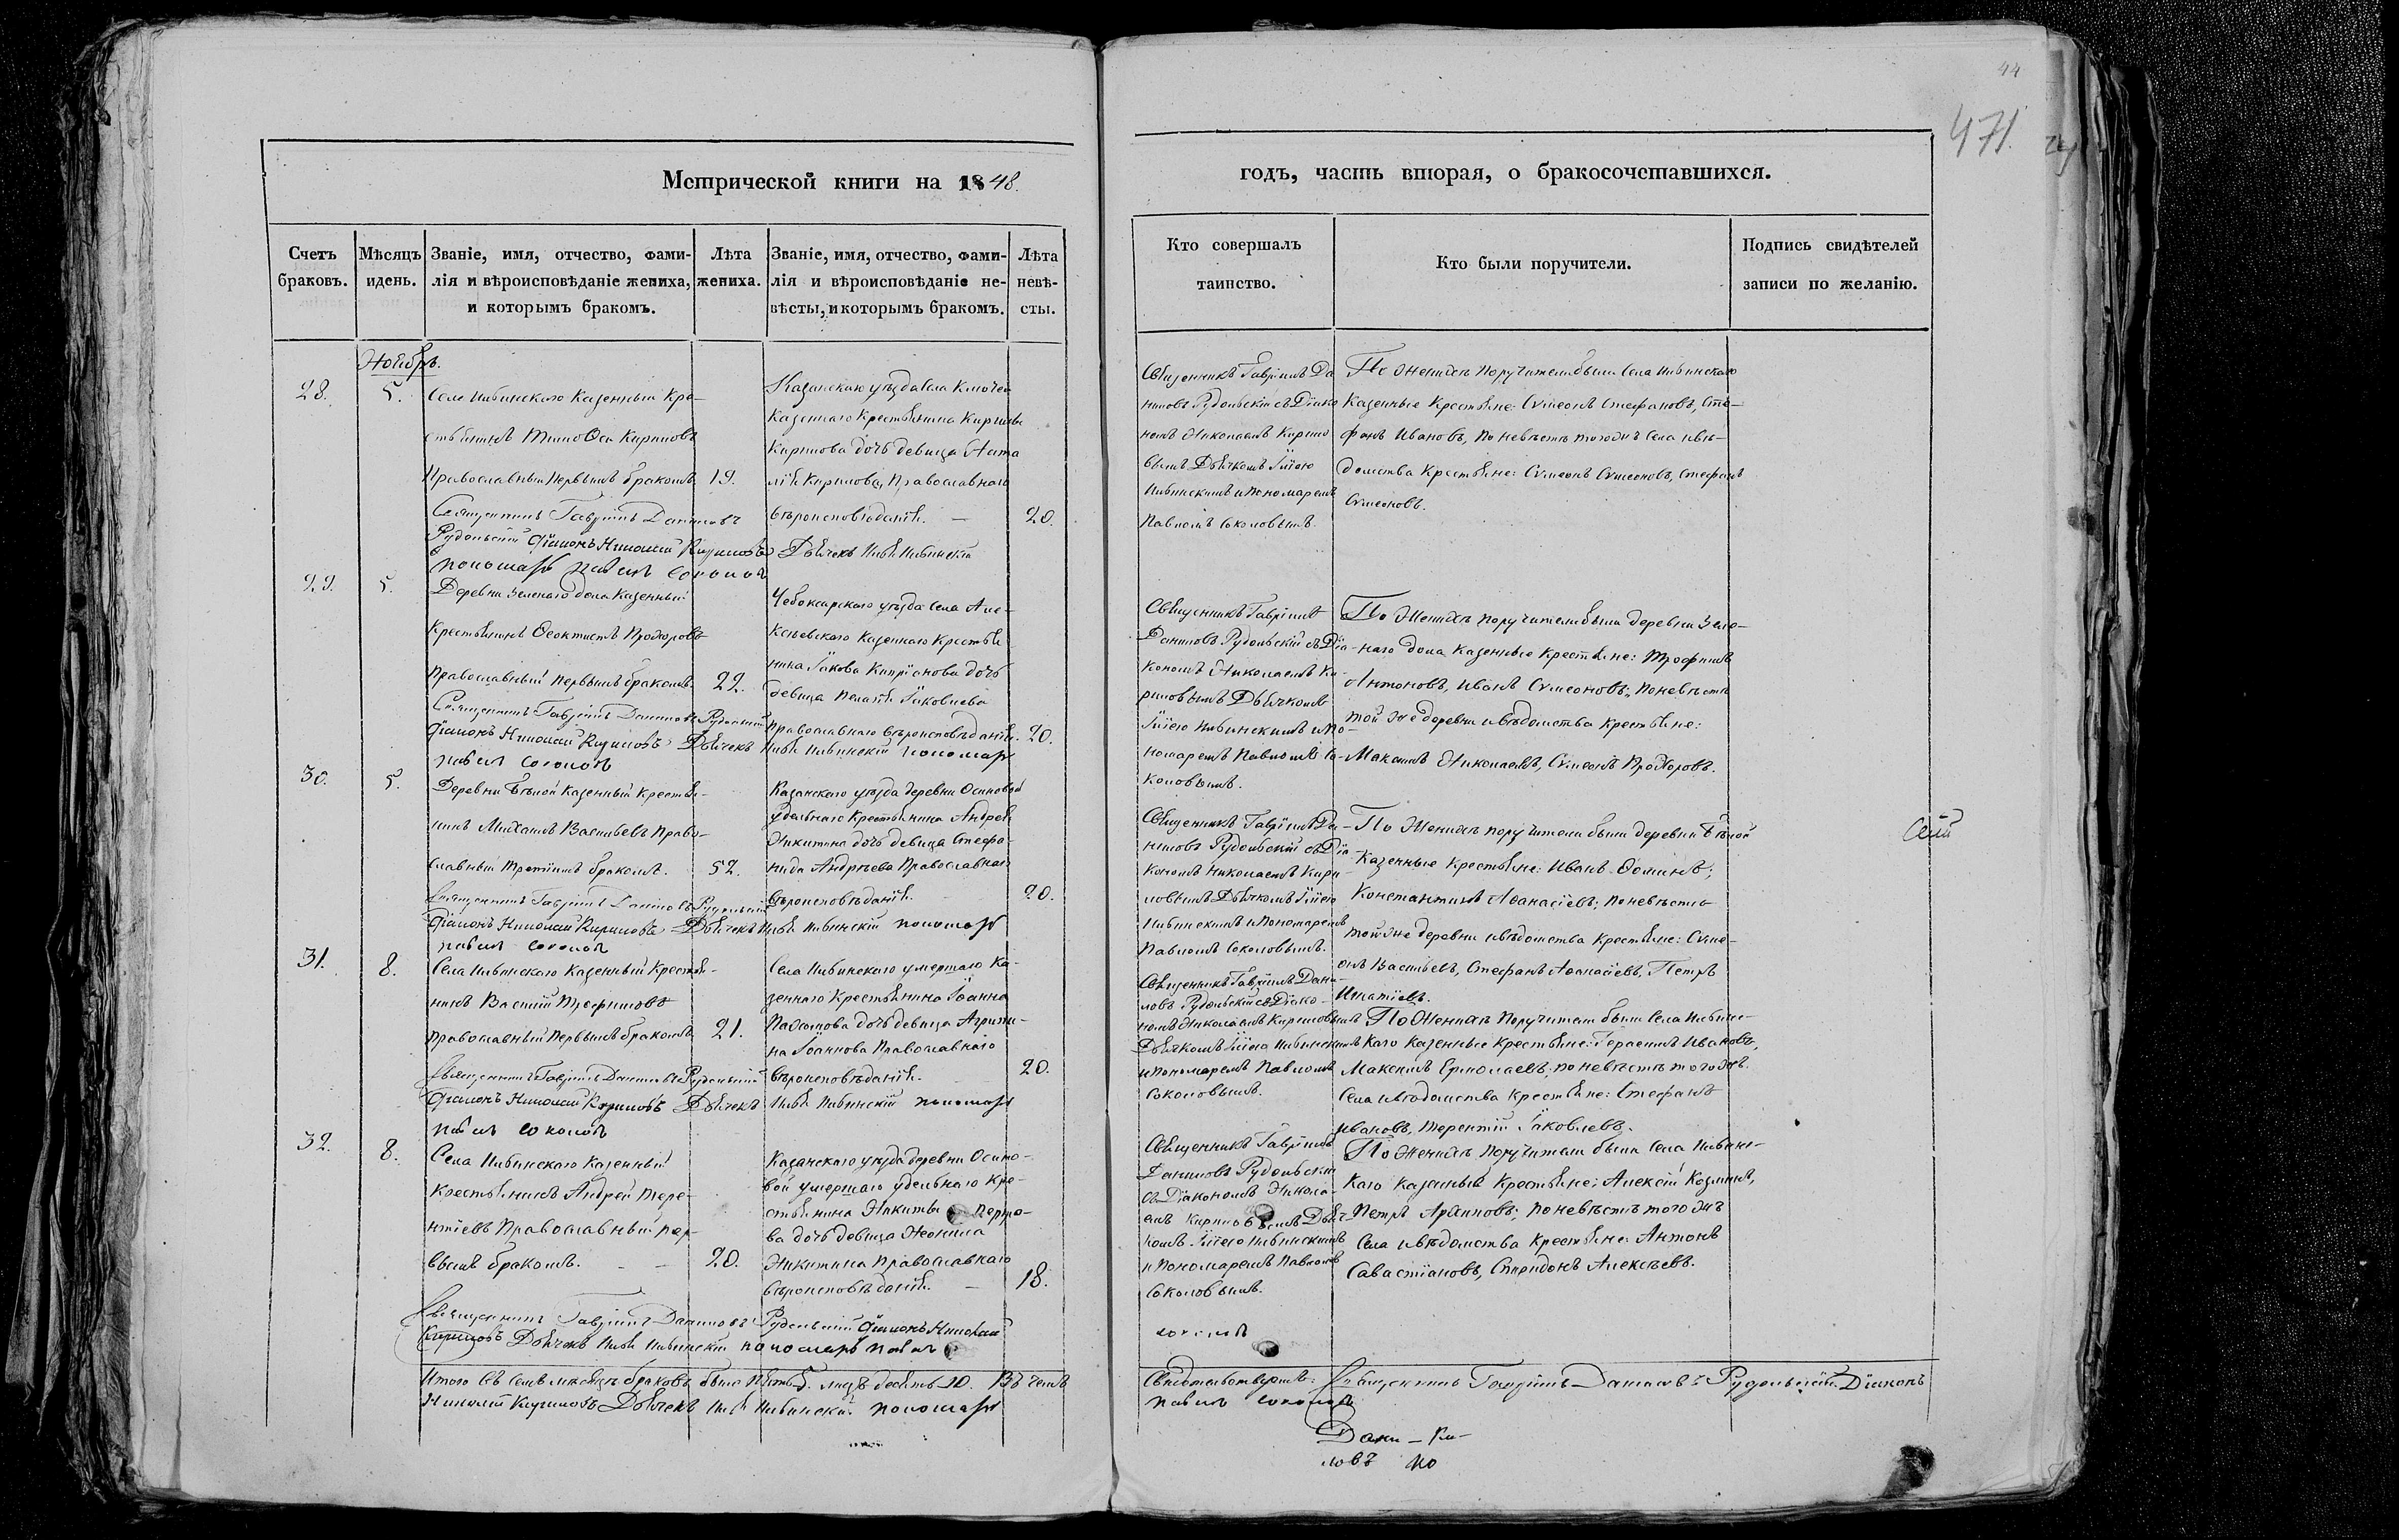 44
471.
Метрической книги на 1848.
годъ, часть вторая, о бракосочетавшихся.
Счетъ браковъ.
Мѣсяцъ и день.
Званіе, имя, отчество, фами-
лія и вѣроисповѣданіе жениха,
и которымъ бракомъ.
Лѣта
жениха.
Званіе, имя, отчество, фами-
лія и вѣроисповѣданіе не-
вѣсты, и которымъ бракомъ.
Лѣта
невѣ-
сты.
Кто совершалъ
таинство.
Кто были поручители.
Подпись свидѣтелей
записи по желанію.
Ноябрь.
28.
5.
Села казенный кре-
стьянинъ Кириловъ
Православный первымъ бракомъ
19.
Священникъ Гавріилъ Даниловъ
Рудольскій Діаконъ Николай Кириловъ Дьячекъ
пономарь Павелъ Соколовъ
Казанскаго уѣзда села Ключей
казеннаго крестьянина Кирилы
Кирилова дочь девица Ната
лія Кирилова, Православнаго
вѣроисповѣданія. —
20.
Священникъ Гавріилъ Да
ниловъ Рудольскій съ Діако
номъ Николаемъ Кирило
вымъ Дьячкомъ Іліею
и пономаремъ
Павломъ Соколовымъ.
По женихѣ поручители были села
казенные крестьяне: Сѵмеонъ Стефановъ, Сте-
фанъ Ивановъ, по невѣстѣ тогожъ села и вѣ-
домства крестьяне: Сѵмеонъ Сѵмеоновъ, Стефанъ
Сѵмеоновъ.
29.
5.
Деревни Зеленаго дола казенный
крестьянинъ Ѳеоктистъ Прохоровъ
православный первымъ бракомъ.
22.
Священникъ Гавріилъ Даниловъ Рудольскій
Діаконъ Николай Кириловъ Дьячекъ Илья пономарь
Павелъ Соколовъ
Чебоксарскаго уѣзда села Але-
ксѣевскаго казеннаго крестья
нина Іакова Кипріанова дочь
девица Іаковлева
православнаго вѣроисповѣданія.
20.
Священникъ Гавріилъ
Даниловъ Рудольскій съ Діа-
кономъ Николаемъ Ки-
риловымъ Дьячкомъ
Іліею и по-
номаремъ Павломъ Со-
коловымъ.
По женихѣ поручители были деревни Зеле-
наго дола казенные крестьяне: Трофимъ
Антоновъ, Иванъ Сѵмеоновъ; по невѣстѣ
той же деревни и вѣдомства крестьяне:
Максимъ Николаевъ, Сѵмеонъ Прохоровъ.
30.
5.
Деревни Бѣлой казенный крестья-
нинъ Михаилъ Васильевъ Право-
славный третіимъ бракомъ.
52.
Священникъ Гавріилъ Даниловъ Рудольскій
Діаконъ Николай Кириловъ Дьячекъ Илья пономарь
Павелъ Соколовъ
Казанскаго уѣзда деревни Осиновой
удѣльнаго крестьянина Андрея
Никитина дочь девица Стефа-
нида Андреева Православнаго
вѣроисповѣданія.
20.
Священникъ Гавріилъ Да-
ниловъ Рудольскій съ Діа-
кономъ Николаемъ Кири-
ловымъ Дьячкомъ Іліею
и пономаремъ
Павломъ Соколовымъ.
По женихѣ поручители были деревни Бѣлой
казенные крестьяне: Иванъ Ѳоминъ,
Константинъ Аѳанасіевъ; по невѣстѣ
той же деревни и вѣдомства крестьяне: Сѵме-
онъ Васильевъ, Стефанъ Аѳанасіевъ, Петръ
Игнатіевъ.
31.
8.
Села казенный крестья-
нинъ Василій Трофимовъ
православный первымъ бракомъ
21.
Священникъ Гавріилъ Даниловъ Рудольскій
Діаконъ Николай Кириловъ Дьячекъ Илья пономарь
Павелъ Соколовъ
Села умершаго ка-
зеннаго крестьянина Іоанна
Пахомова дочь девица Агрипи-
на Іоаннова Православнаго
вѣроисповѣданія.
20.
Священникъ Гавріилъ Дани-
ловъ Рудольскій съ Діако-
номъ Николаемъ Кириловымъ
Дьячкомъ Іліею
и пономаремъ Павломъ
Соколовымъ.
По женихѣ поручители были села
каго казенные крестьяне: Герасимъ Ивановъ,
Максимъ Ермолаевъ; по невѣстѣ тогожъ
села и вѣдомства крестьяне: Стефанъ
Ивановъ, Терентій Іаковлевъ.
32.
8.
Села казенный
крестьянинъ Андрей Тере-
нтіевъ Православный пер-
вымъ бракомъ. — —
20.
Священникъ Гавріилъ Даниловъ Рудольскій Діаконъ Николай
Кириловъ Дьячекъ Илья пономарь Павелъ
Соколовъ
Казанскаго уѣзда деревни Осино-
вой умершаго удѣльнаго кре-
стьянина Никиты
ва дочь девица Неонила
Никитина Православнаго
вѣроисповѣданія. —
18.
Священникъ Гавріилъ
Даниловъ Рудольскій
съ Діакономъ Никола-
емъ Кириловымъ Дьяч-
комъ Іліею
и пономаремъ Павломъ
Соколовымъ.
По женихѣ поручители были села
каго казенные крестьяне: Алексій Козминъ,
Петръ Архиповъ; по невѣстѣ того жъ
села и вѣдомства крестьяне: Антонъ
Савастіановъ, Спиридонъ Алексѣевъ.
Итого въ семъ мѣсяцѣ браковъ было пять 5. лицъ десять 10. Въ чемъ
Свидѣтельствуемъ: Священникъ Гавріилъ Даниловъ Рудольскій Діаконъ
Николай Кириловъ Дьячекъ Илья пономарь
Павелъ Соколовъ
Дани — Ки-
ловъ но